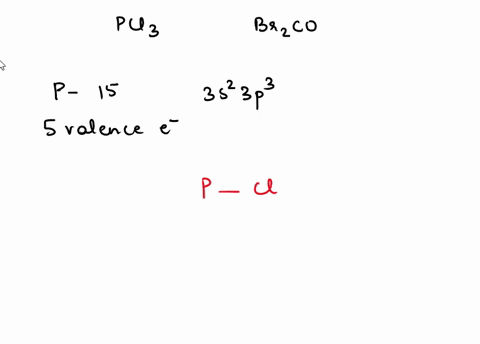 PCl₃ Br₂CO
P- 15 3s²3p³
5 valence e⁻
P — Cl